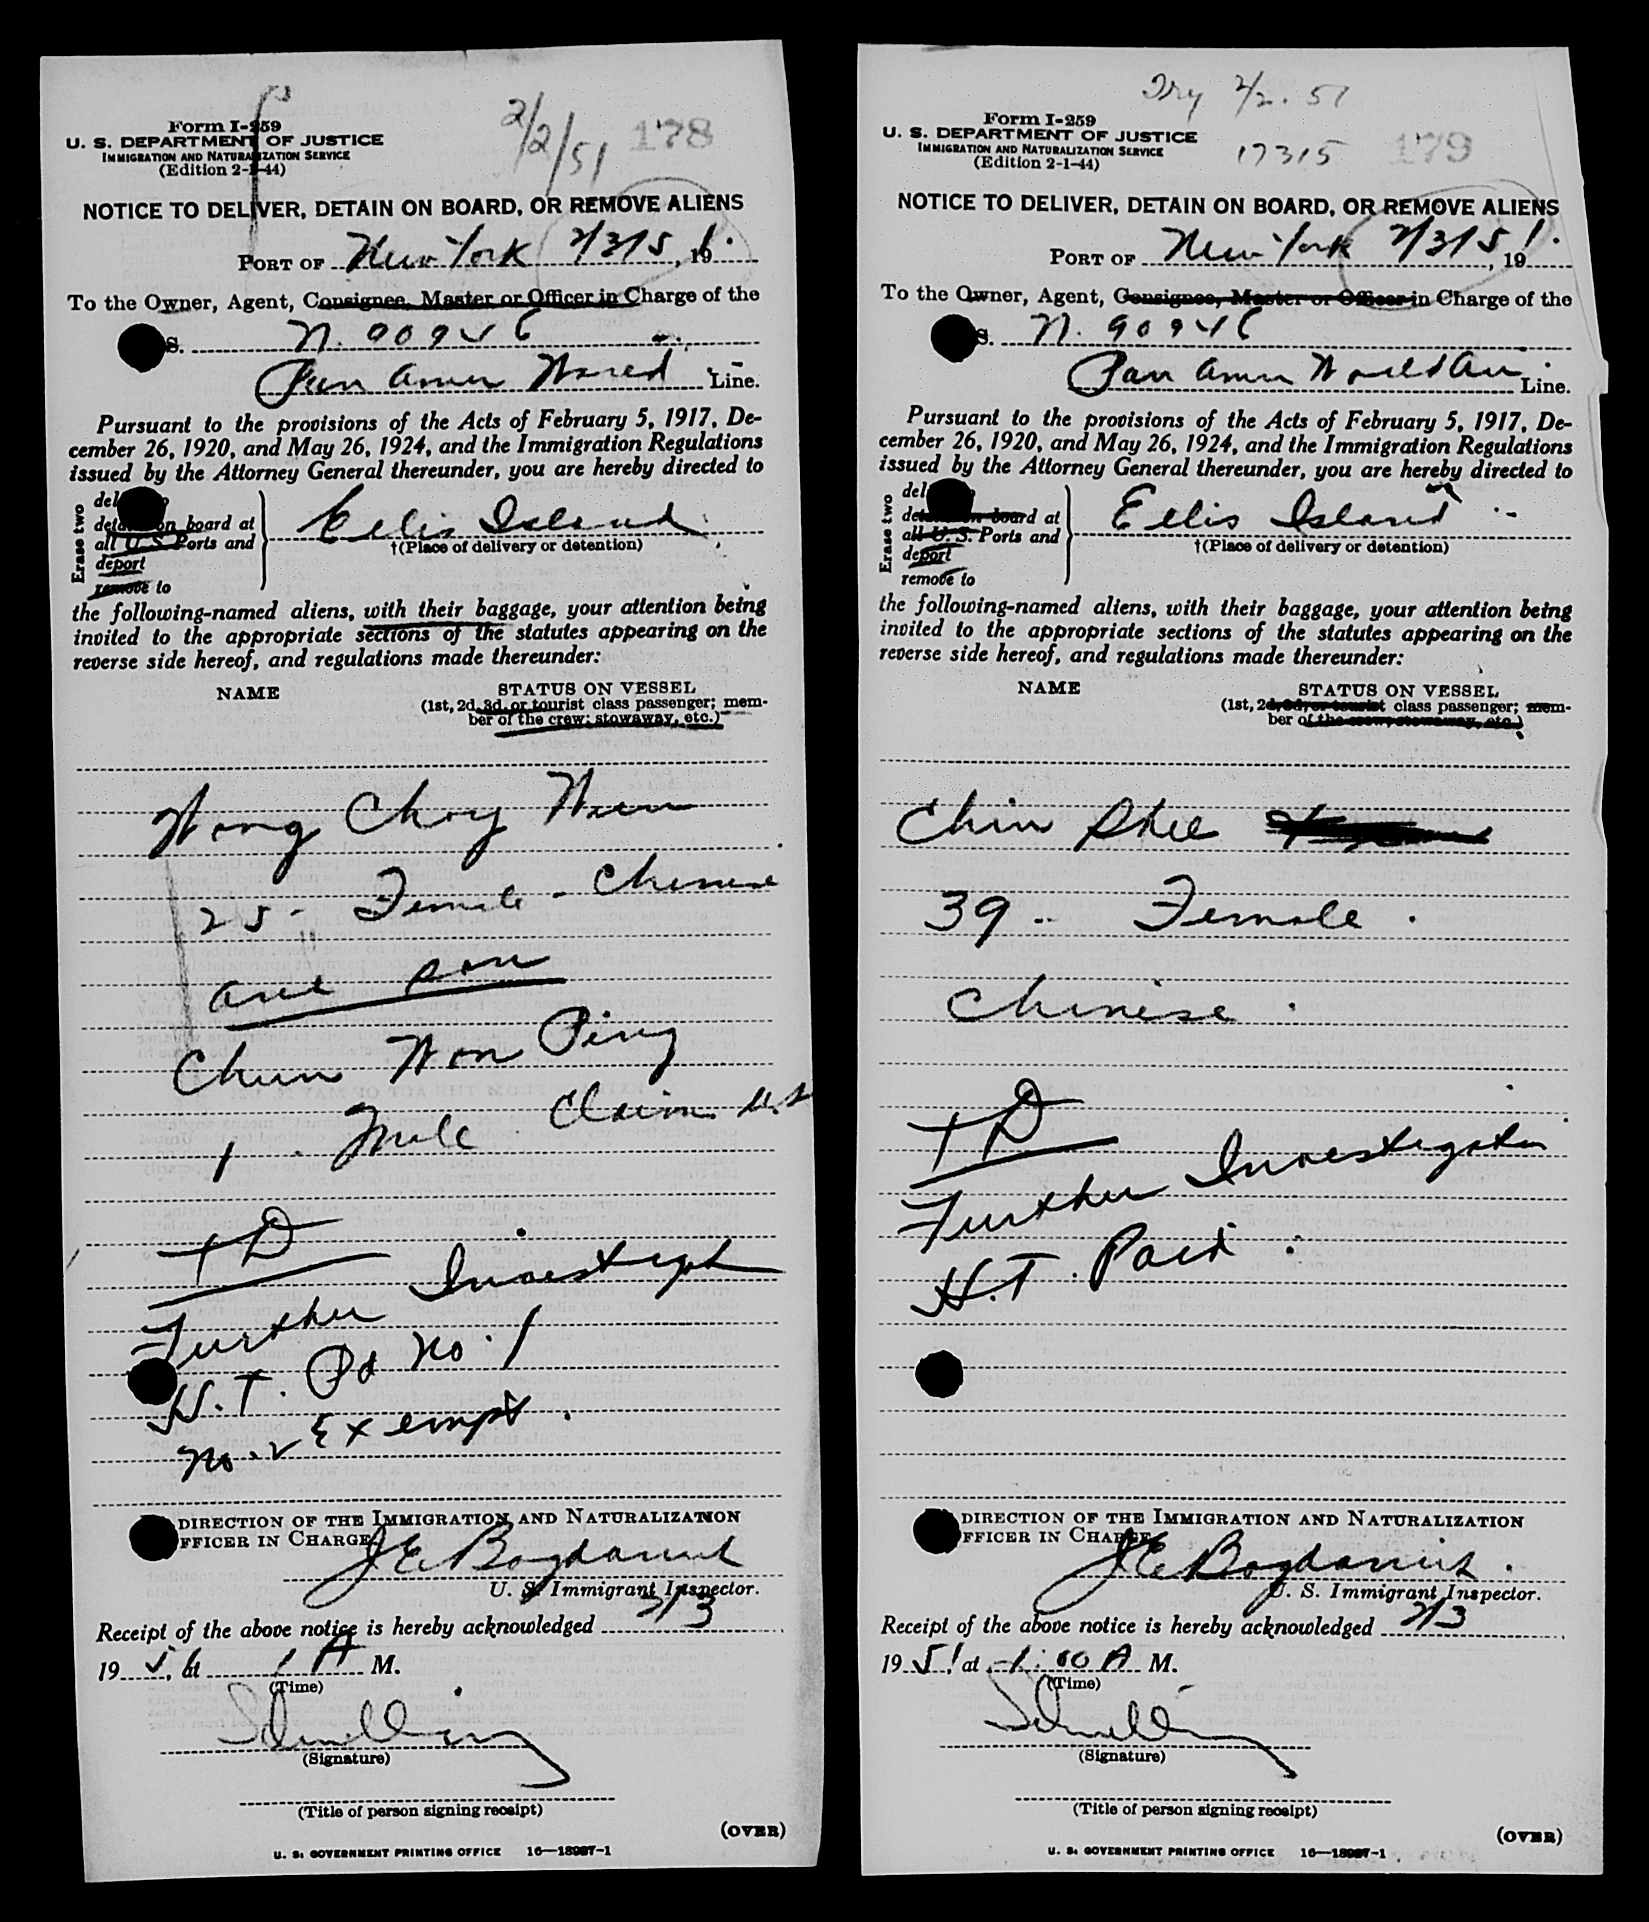 2/2/51
178
Form I-259
U. S. DEPARTMENT OF JUSTICE
IMMIGRATION AND NATURALIZATION SERVICE
(Edition 2-1-44)
NOTICE TO DELIVER, DETAIN ON BOARD, OR REMOVE ALIENS
PORT OF New York 2/3/51, 19
To the Owner, Agent, Consignee, Master or Officer in Charge of the
S. N. 90946
Pan Amer World Line.
Pursuant to the provisions of the Acts of February 5, 1917, De-
cember 26, 1920, and May 26, 1924, and the Immigration Regulations
issued by the Attorney General thereunder, you are hereby directed to
Erase two
del to
deta on board at
all U. S. Ports and
deport
remove to
Ellis Island
†(Place of delivery or detention)
the following-named aliens, with their baggage, your attention being
invited to the appropriate sections of the statutes appearing on the
reverse side hereof, and regulations made thereunder:
NAME
STATUS ON VESSEL
(1st, 2d, 3d, or tourist class passenger; mem-
ber of the crew; stowaway, etc.)
Wong Choy
25 - Female - Chinese
and son
Chun Won Ping
1 . Male . Claim U.S
T D
Further Investigat
H.T. Pd No. 1
No. 2 Exempt.
DIRECTION OF THE IMMIGRATION AND NATURALIZATION
FFICER IN CHARGE.
J E Bogdaniuk
U. S. Immigrant Inspector.
Receipt of the above notice is hereby acknowledged 2/3
19 51, at 1 A M.
(Time)
(Signature)
(Title of person signing receipt)
(OVER)
U. S. GOVERNMENT PRINTING OFFICE 16—18987-1
2/2.51
17315
179
Form I-259
U. S. DEPARTMENT OF JUSTICE
IMMIGRATION AND NATURALIZATION SERVICE
(Edition 2-1-44)
NOTICE TO DELIVER, DETAIN ON BOARD, OR REMOVE ALIENS
PORT OF New York 2/3/51, 19
To the Owner, Agent, Consignee, Master or Officer in Charge of the
S. N. 90946
Pan Amer World Air Line.
Pursuant to the provisions of the Acts of February 5, 1917, De-
cember 26, 1920, and May 26, 1924, and the Immigration Regulations
issued by the Attorney General thereunder, you are hereby directed to
Erase two
del
det on board at
all U. S. Ports and
deport
remove to
Ellis Island
†(Place of delivery or detention)
the following-named aliens, with their baggage, your attention being
invited to the appropriate sections of the statutes appearing on the
reverse side hereof, and regulations made thereunder:
NAME
STATUS ON VESSEL
(1st, 2d, 3d, or tourist class passenger; mem-
ber of the crew; stowaway, etc.)
Chin Shee
39 - Female .
Chinese .
T D
Further Investigation
H.T. Paid .
DIRECTION OF THE IMMIGRATION AND NATURALIZATION
FFICER IN CHARGE.
J E Bogdaniuk
U. S. Immigrant Inspector.
Receipt of the above notice is hereby acknowledged 2/3
19 51, at 1:00 A M.
(Time)
(Signature)
(Title of person signing receipt)
(OVER)
U. S. GOVERNMENT PRINTING OFFICE 16—18987-1